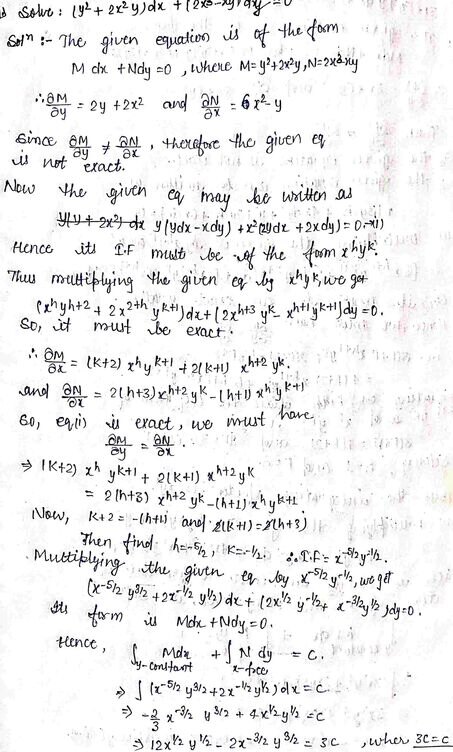 Solve: (y² + 2x²y)dx + (2x³-xy)dy = 0
Solⁿ :- The given equation is of the form
M dx + Ndy = 0 , where M = y²+2x²y, N=2x³-xy
∴ ∂M/∂y = 2y + 2x² and ∂N/∂x = 6x²-y
Since ∂M/∂y ≠ ∂N/∂x , therefore the given eq
is not exact.
Now the given eq may be written as
y(y + 2x²) dx y(ydx-xdy) + x²(2ydx + 2xdy) = 0 → (1)
Hence its I.F must be of the form xʰyᵏ.
Thus multiplying the given eq by xʰyᵏ, we get
(xʰyᵏ⁺² + 2x²⁺ʰ yᵏ⁺¹)dx + (2xʰ⁺³ yᵏ - xʰ⁺¹yᵏ⁺¹)dy = 0.
So, it must be exact.
∴ ∂M/∂y = (K+2) xʰyᵏ⁺¹ + 2(k+1) xʰ⁺²yᵏ.
and ∂N/∂x = 2(h+3)xʰ⁺²yᵏ - (h+1) xʰyᵏ⁺¹
So, eq(i) is exact, we must have
∂M/∂y = ∂N/∂x.
⇒ (K+2) xʰ yᵏ⁺¹ + 2(k+1) xʰ⁺²yᵏ
= 2(h+3) xʰ⁺²yᵏ - (h+1) xʰyᵏ⁺¹
Now, K+2 = -(h+1) and 2(k+1) = 2(h+3)
Then find h=-5/2, K=-1/2. ∴ I.F = x^-5/2 y^-1/2.
Multiplying the given eq by x^-5/2 y^-1/2, we get
(x^-5/2 y^3/2 + 2x^-1/2 y^1/2) dx + (2x^1/2 y^-1/2 + x^-3/2 y^1/2)dy=0.
Its form is Mdx + Ndy = 0.
Hence, ∫ Mdx + ∫ N dy = C.
y-constant x-free
⇒ ∫ (x^-5/2 y^3/2 + 2x^-1/2 y^1/2) dx = C
⇒ -2/3 x^-3/2 y^3/2 + 4x^1/2 y^1/2 = C
⇒ 12x^1/2 y^1/2 - 2x^-3/2 y^3/2 = 3C , wher 3C=C